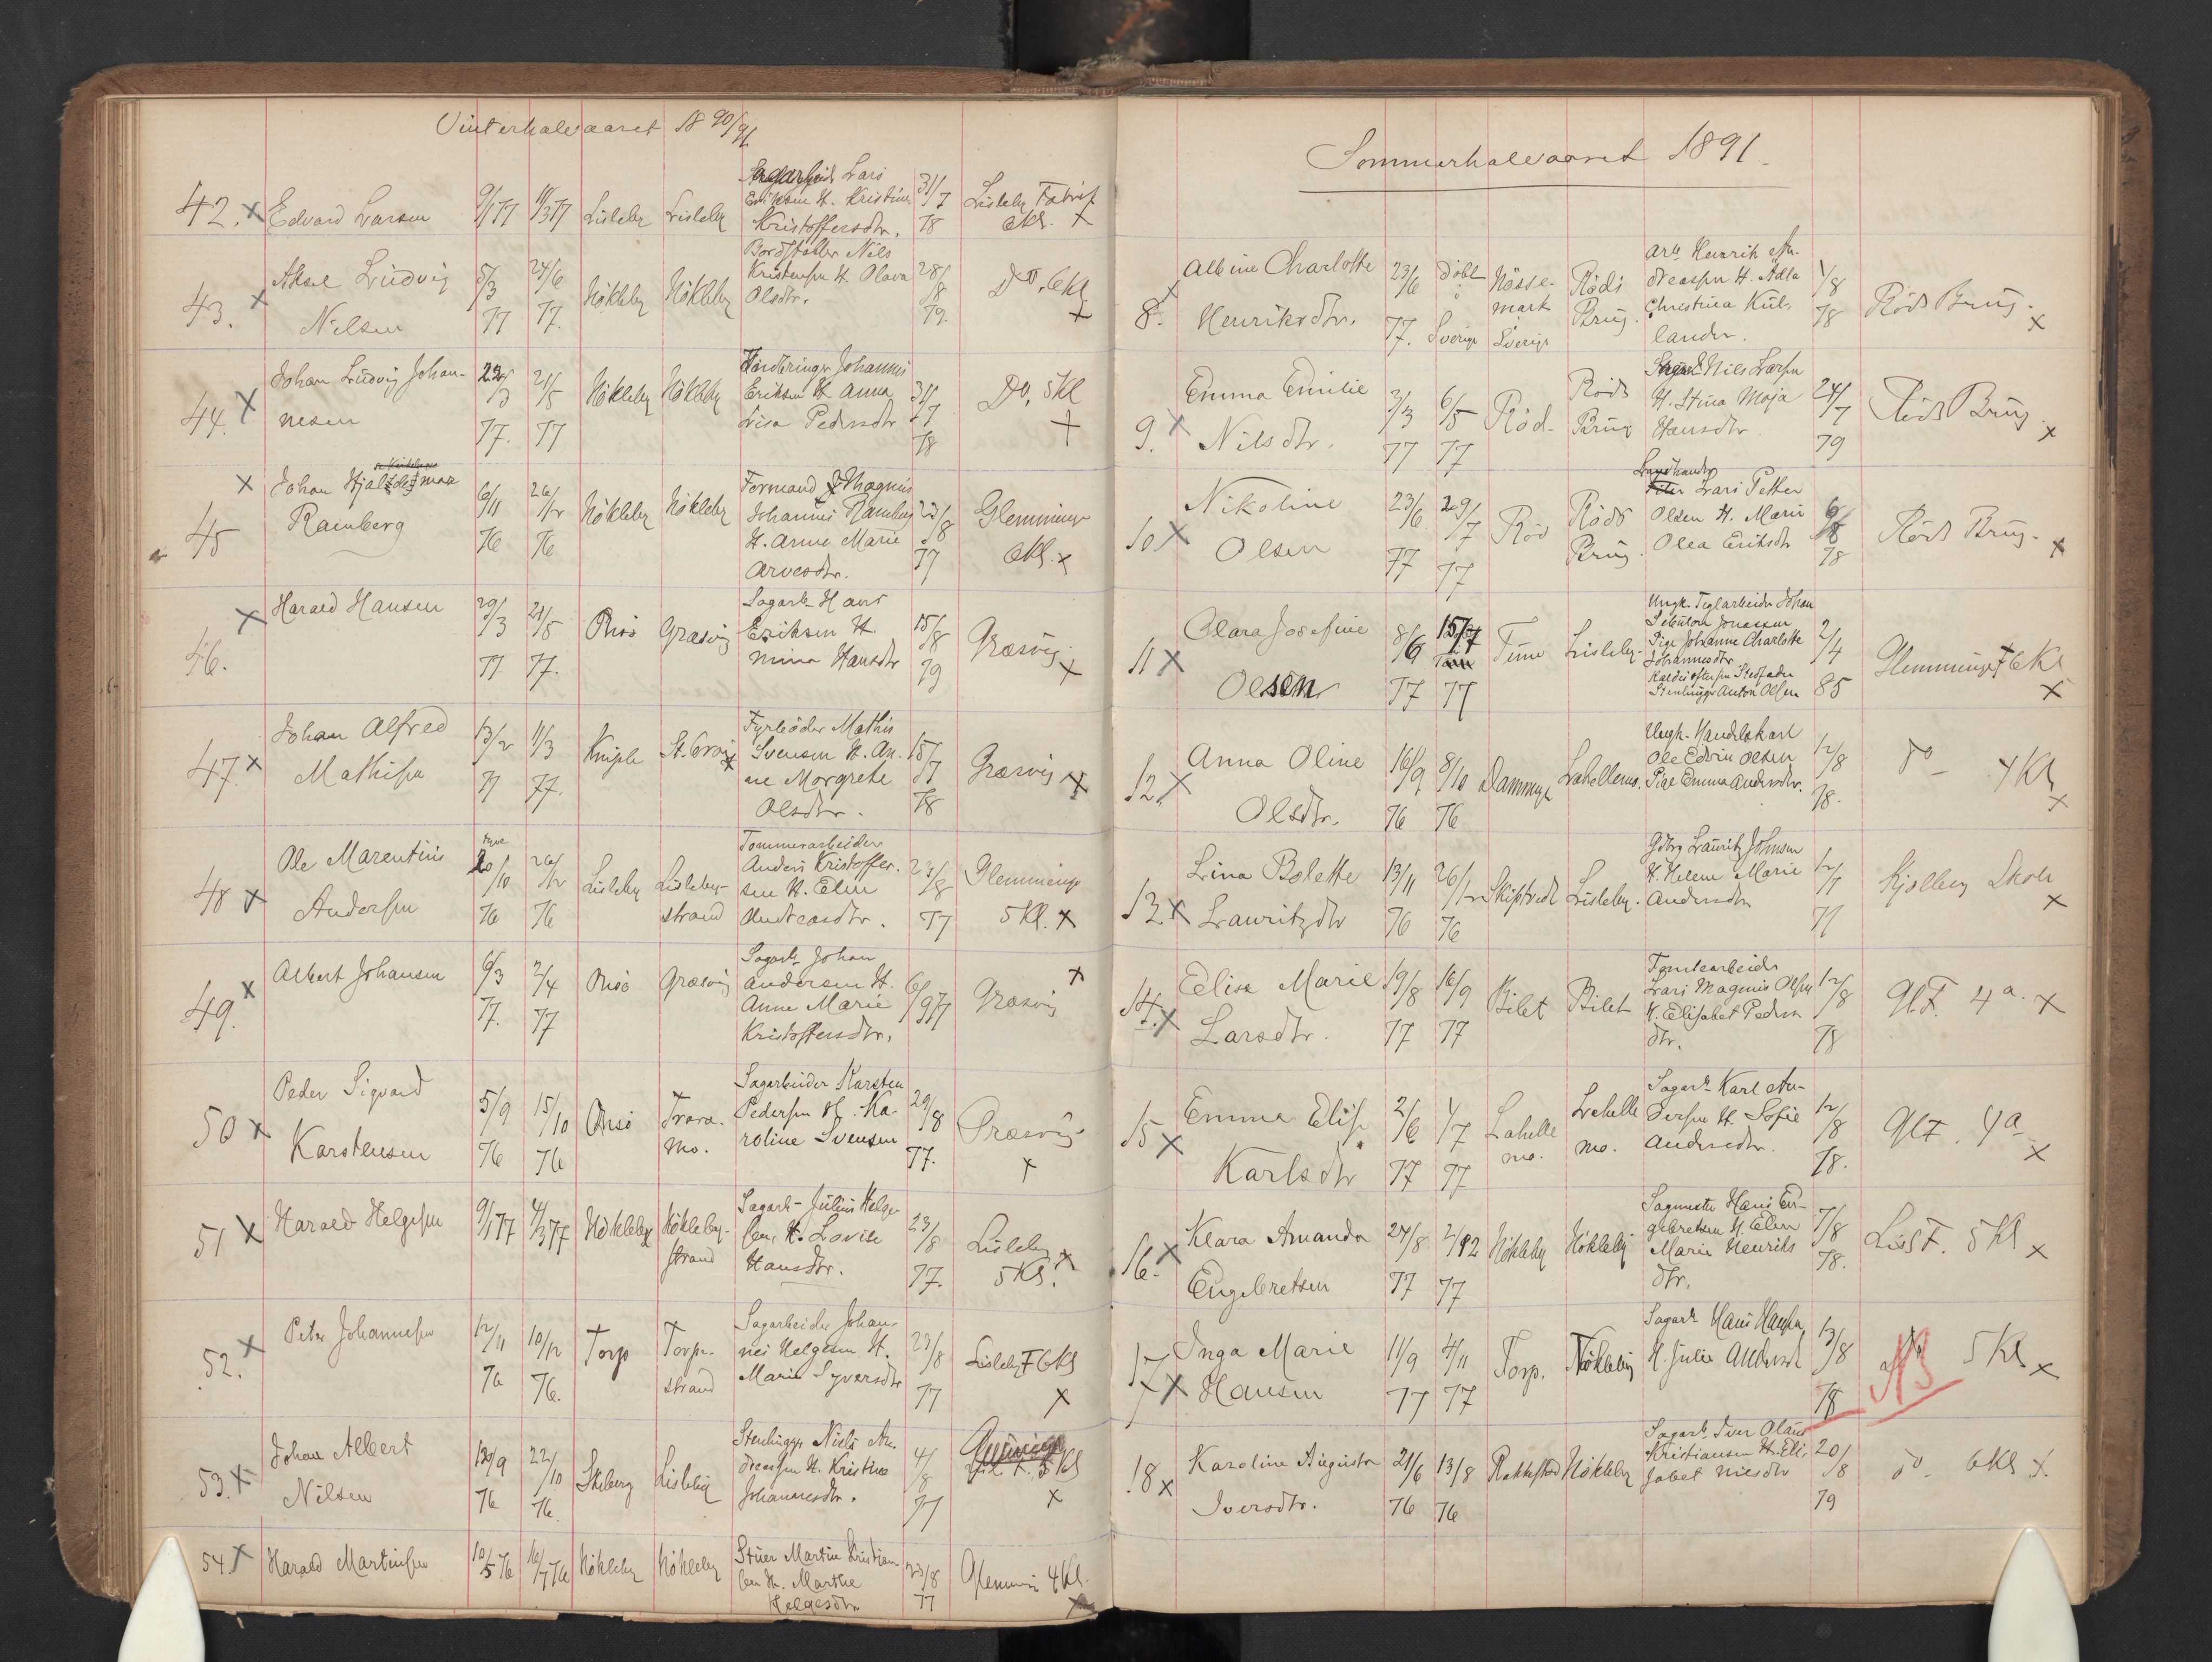 Vinterhalvaaret 18 90/91
42. x Edvard Larsen 9/1 77 11/3 77 Lisleby Lisleby Sagarbeid Lars
Eriksen H. Kristine
Kristoffersdtr. 31/7 78 Lisleby Fabrik
6Kl. x
43. x Aksel Ludvig
Nilsen 5/3 77 24/6 77. Nökleby Nökleby Bordstabler Nils
Kristensen H. Olava
Olsdtr. 28/8 79. Do, 6Kl x
44. x Johan Ludvig Johan-
nesen 77. 21/5 77 Nökleby Nökleby Johannes
Eriksen H Anna
Lisa Pedersdtr 31/7 78 Do, 5Kl x
45 x Johan Hjalmar
Ramberg 6/11 76 26/12 76 Nökleby Nökleby Formand Magnus
Johannes Ramberg
H. Anne Marie
Arvesdtr. 23/8 77 Glemminge
6Kl. x
46. x Harald Hansen 29/3 77 21/5 77. Onsö Græsvig Sagarb. Hans
Eriksen H.
Mina Hansdtr 15/8 79 Græsvig x
47. x Johan Alfred
Mathisen 13/2 77 11/3 77. Kniple Fyrböder Mathis
Svensen H. An-
ne Margrete
Olsdtr. 15/7 78 Græsvig x
48 x Ole Marentius
Andersen tyve
20/10 76 26/12 76 Lisleby Lisleby-
strand Tommerarbeider
Anders Kristoffer-
sen H. Elen
Andreasdtr. 23/8 77 Glemminge
5Kl. x
49. x Albert Johansen 6/3 77. 2/4 77 Onsö Græsvig Sagarb. Johan
Andersen H.
Anne Marie
Kristoffersdtr. 6/9 77 Græsvig x
50 x Peder Sigvard
Karstensen 5/9 76 15/10 76 Onsö Trara-
mo. Sagarbeider Karsten
Pedersen H. Ka-
roline Svensen 29/8 77. Græsvig x
51 x Harald Helgesen 9/1 77 4/3 77 Nökleby Nökleby-
strand Sagarb- Julius Helge-
sen H. Lovise
Hansdtr. 23/8 77. Lisleby x
5Kl.
52. x Peter Johannesen 12/11 76 10/12 76. Torp Torp-
strand Sagarbeider Johan-
nes Helgesen H.
Marie Syversdtr 23/8 77 Lisleby F 6Kl x
53. x Johan Albert
Nilsen 13/9 76 22/10 76. Skiberg Lisleby Stenhugger Niels An-
dreassen H. Kristine
Johannesdtr. 4/8 77 Lisl. F. 5Kl x
54. x Harald Martinsen 10/5 76 16/7 76 Nökleby Nökleby Stuer Martin Kristian-
sen H. Marthe
Helgesdtr 23/8 77 Glemmin 4Kl. x
Sommerhalvaaret 1891.
8. x Albine Charlotte
Henriksdtr. 23/6 77. döbt
i
Sverige Nösse-
mark
Sverige Röds
Brug. Arb. Henrik An-
dreassen H. Adla
Christina Kul-
lander. 1/8 78 Röds Brug. x
9. x Emma Emilie
Nilsdtr. 3/3 77 6/5 77 Röd- Röds
Brug Nils Larsen
H. Stina Maja
Hansdtr 24/7 79 Röds Brug. x
10 x Nikoline
Olsen 23/6 77 29/7 77 Röd Röds
Brug. Landhandler
Lars Petter
Olsen H. Marie
Olea Eriksdtr 6/8 78 Röds Brug. x
11 x Clara Josefine
Olsen 8/6 77 15/7 77 Tune Lisleby- Ungk. Teglarbeider Johan
Jonassen
Pige Johanne Charlotte
Johannesdtr
Kaldes efter sin Stedfader
Stenhugger Anton Olsen 2/4 85 Glemminge F 6Kl x
12. x Anna Oline
Olsdtr. 16/9 76 8/10 76 Dammyr Labellemo. Ungk. Handelskarl
Ole Edvin Olsen
Pige Emma Andersdtr. 12/8 78. do - 4Kl x
13. x Lina Bolette
Lauritzdtr 13/11 76 26/12 76 Skiptvedt Lisleby. Gdbrg Lauritz Johnsen
H. Helene Marie
Andersdtr 12/7 77 Kjölberg Skole x
14. x Elise Marie
Larsdtr. 19/8 77 16/9 77 Bilet Bilet Tomtearbeider
Lars Magnus Olsen
H. Elisabet Peders
dtr. 12/8 78 Gl.F. 4a. x
15 x Emma Elise
Karlsdtr 2/6 77 1/7 77 Labelle
mo. Labelle
mo. Sagarb Karl An-
dersen H. Sofie
Andersdtr. 12/8 78. Gl.F. 4a x
16. x Klara Amanda
Engebretsen 24/8 77 2/12 77 Nökleby Nökleby Sagmester Hans En-
gebretsen H. Elen
Marie Henriks
dtr. 7/8 78. Lisl F. 5Kl x
17 x Inga Marie
Hansen 11/9 77 4/11 77 Torp. Nökleby Sagarb Hans Hansen
H. Julie Andersd 13/8 78 NB 5Kl x
18 x Karoline Augusta
Iversdtr. 21/6 76 13/8 76 Rakkestad Nökleby Sagarb. Iver Olaus
Kristiansen H. Eli-
sabet Nilsdtr 20/8 79 do - 6Kl x